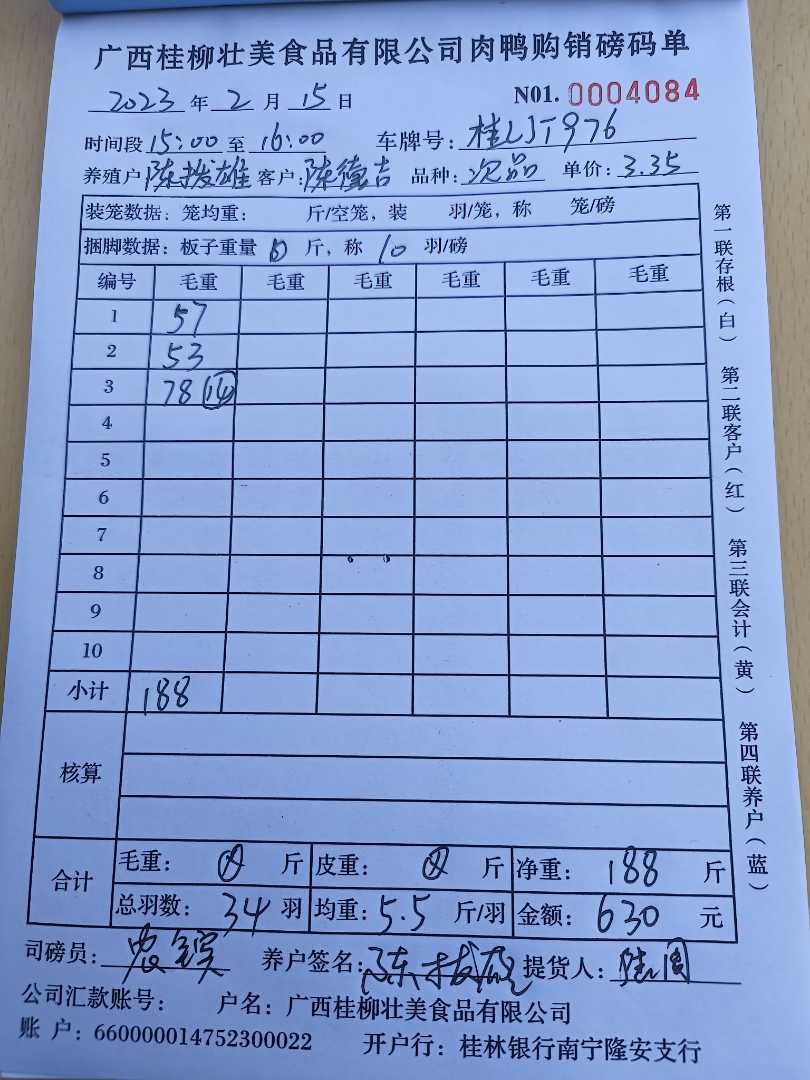 广西桂柳壮美食品有限公司肉鸭购销磅码单
2023 年 2 月 15 日 N01. 0004084
时间段 15:00 至 16:00 车牌号: 桂LJT976
养殖户 陈拔雄 客户: 陈德吉 品种: 次品 单价: 3.35
装笼数据: 笼均重: 斤/空笼, 装 羽/笼, 称 笼/磅
捆脚数据: 板子重量 斤, 称 10 羽/磅
编号 毛重 毛重 毛重 毛重 毛重 毛重
1 57
2 53
3 78 14
4
5
6
7
8
9
10
小计 188
核算
合计
毛重: 斤 皮重: 斤 净重: 188 斤
总羽数: 34 羽 均重: 5.5 斤/羽 金额: 630 元
司磅员: 养户签名: 陈拔雄 提货人:
公司汇款账号: 户名: 广西桂柳壮美食品有限公司
账 户: 660000014752300022 开户行: 桂林银行南宁隆安支行
第一联存根(白) 第二联客户(红) 第三联会计(黄) 第四联养户(蓝)